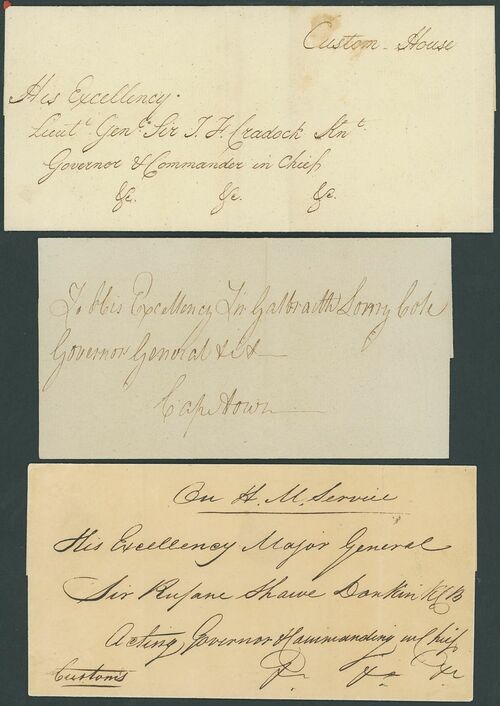 Custom - House
His Excellency.
Lieutt. Genl. Sir J. F. Cradock Knt.
Governor & Commander in Chief
&c. &c. &c.
To His Excellency Sir Galbraith Lowry Cole
Governor General &c &c
Cape Town
On H. M. Service
His Excellency Major General
Sir Rufane Shawe Donkin KCB
Acting Governor & Commanding in Chief
&c &c &c
Customs